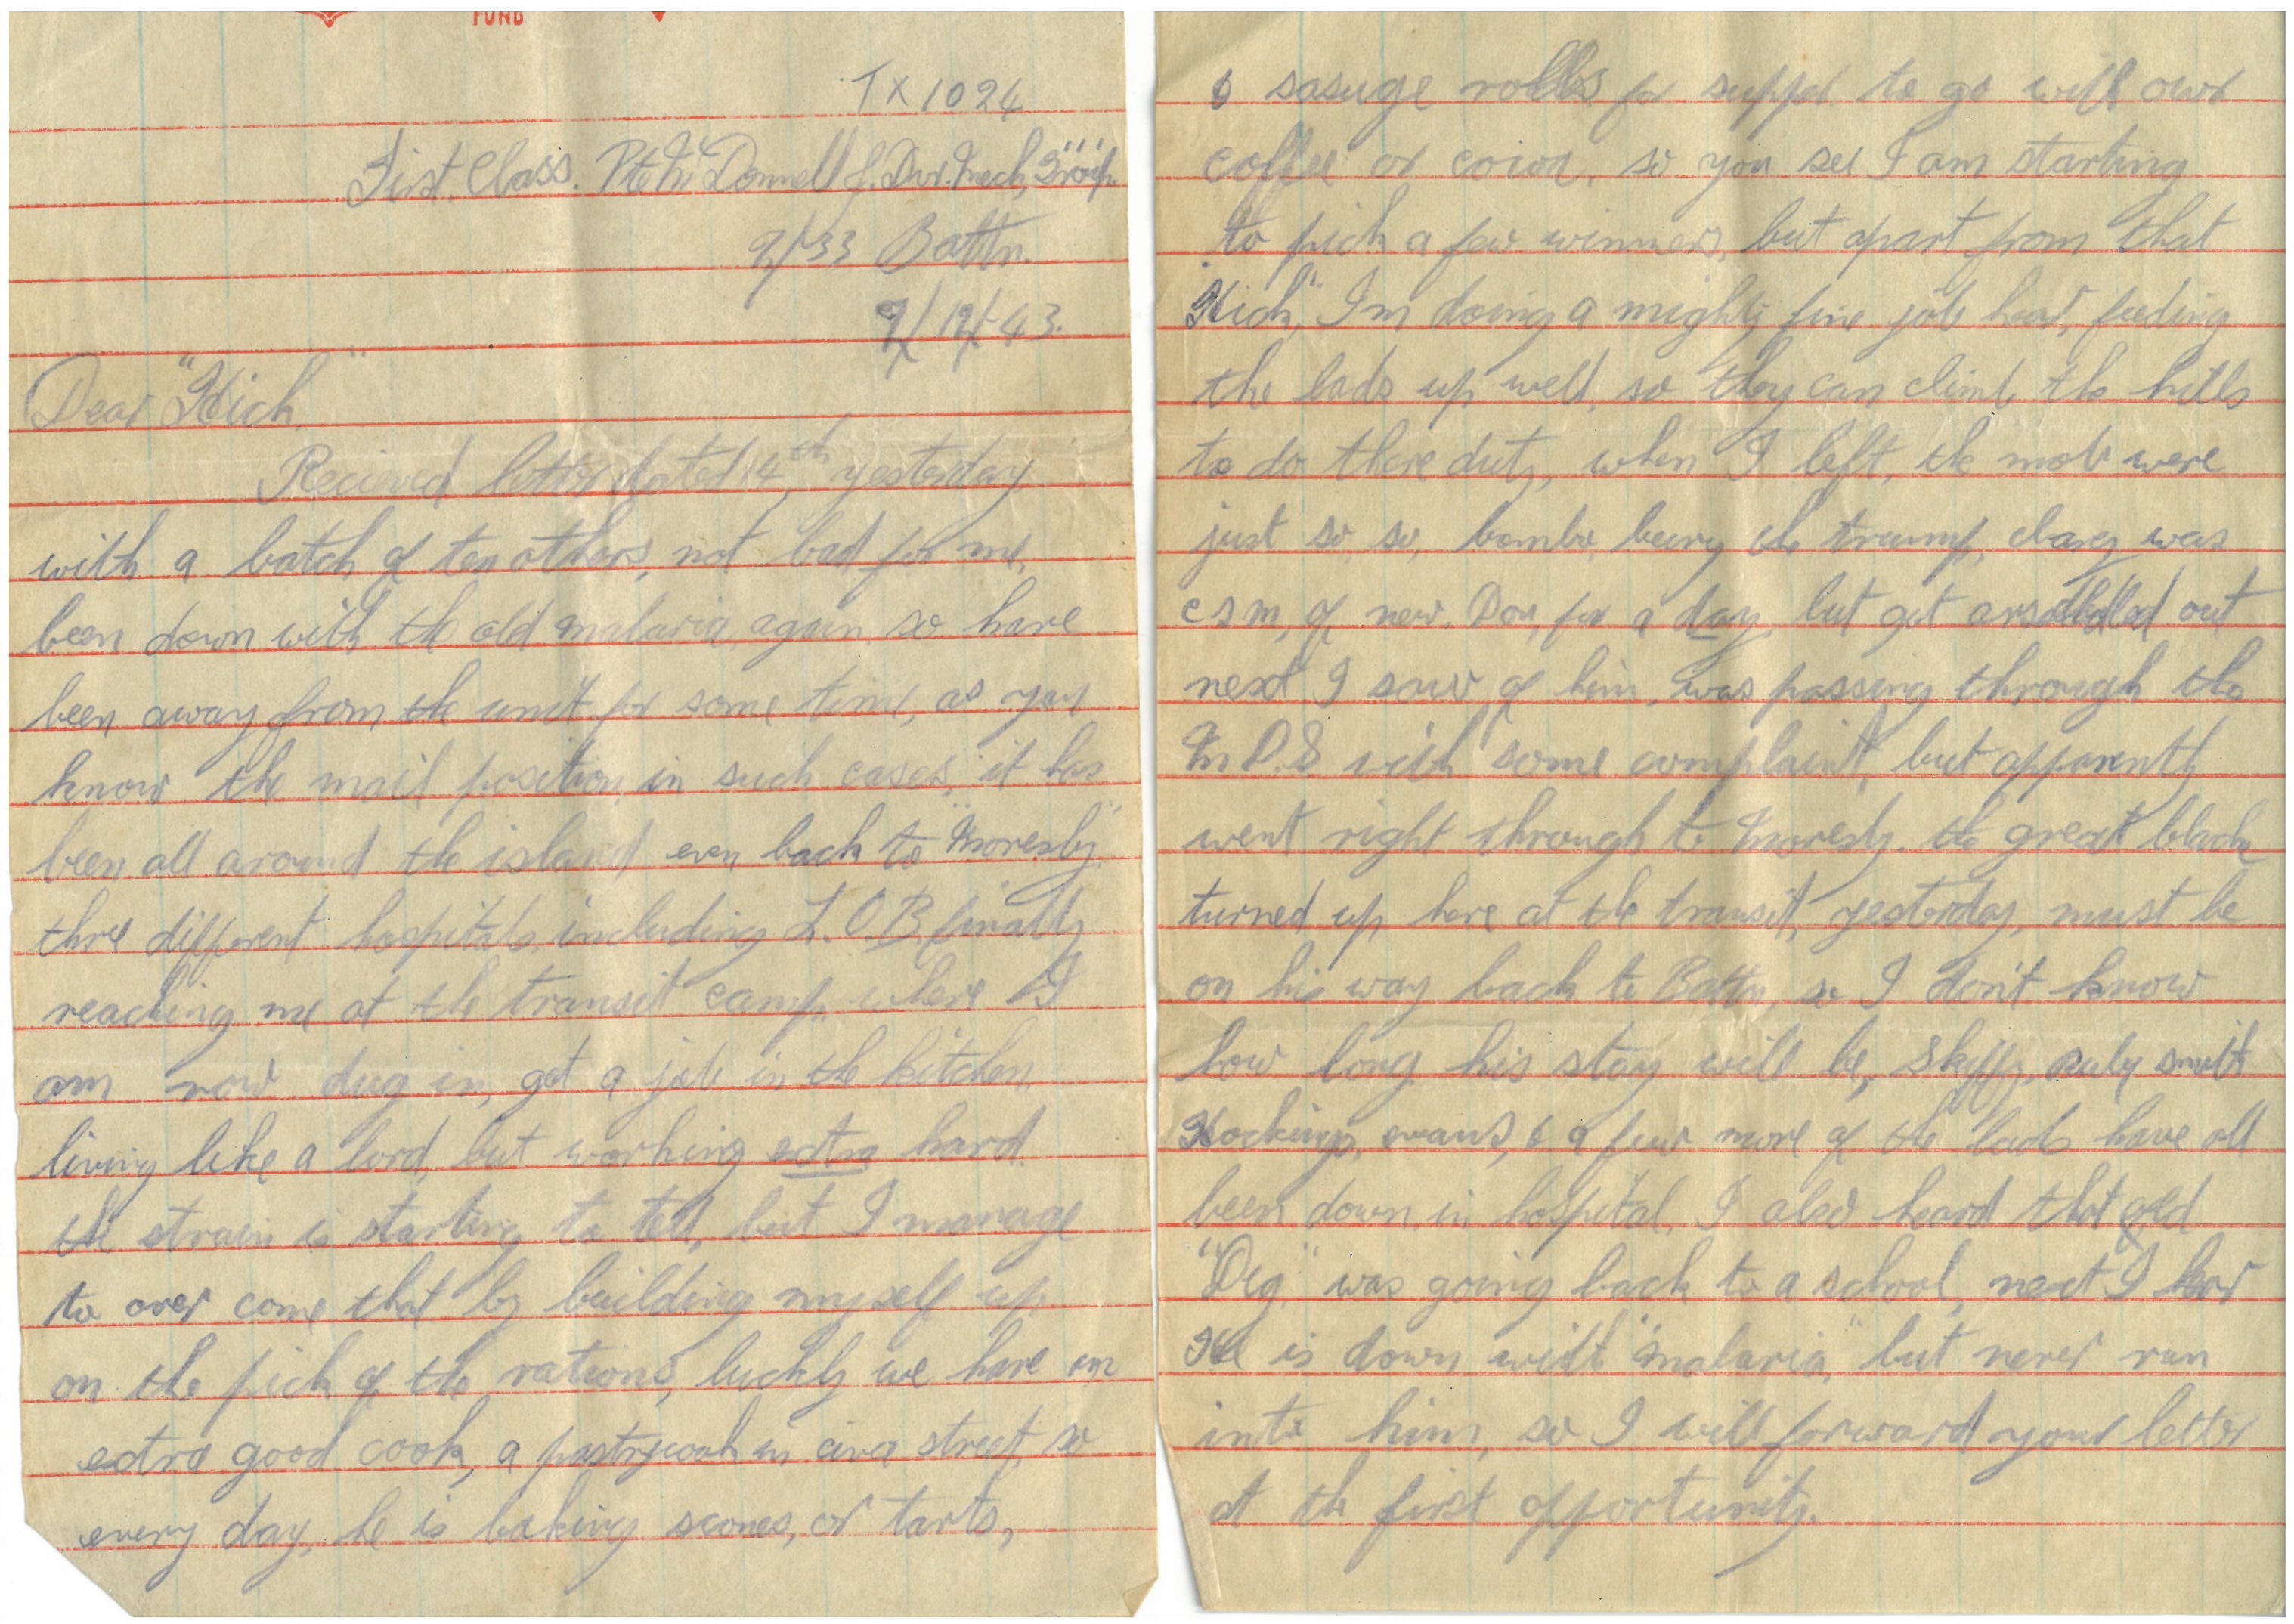 FUND
TX1024
First. Class. Pte Mc Donnell J. Dvr. Mech, Group
2/33 Battn.
2/12/43.
Dear "Hich,"
Recieved letter dated 14th, yesterday
with a batch of ten others, not bad for me,
been down with the old malaria again so have
been away from the unit for some time, as you
know the mail position in such cases, it has
been all around the island even back to "Moresby"
three different hospitals including L.O.B, finally
reaching me at the transit camp, where I
am now dug in, got a job in the kitchen
living like a lord, but working extra hard.
the strain is starting to tell, but I manage
to over come that by building myself up
on the pick of the rations, luckly we have an
extra good cook, a pastrycook in civa street, so
every day, he is baking scones, or tarts,
& sasuge rolls for supper to go with our
coffee or cocoa, so you see I am starting
to pick a few winners, but apart from that
"Hich," I'm doing a mighty fine job hear, feeding
the lads up well, so they can climb the hills
to do there duty, when I left, the mob were
just so, so, the trump, was
csm, of new. Don, for a day, but got out
next I saw of him, was passing through the
M.D.S with some complaint, but apparently
went right through to Moresby. the great black
turned up here at the transit, yesterday, must be
on his way back to Battn, so I don't know
how long his stay will be, Skippy, smith
Hockings, evans, & a few more of the lads have all
been down in hospital, I also heard that old
"Dig" was going back to a school, next I hear
He is down with "malaria," but never run
into him, so I will forward your letter
at the first opportunity.